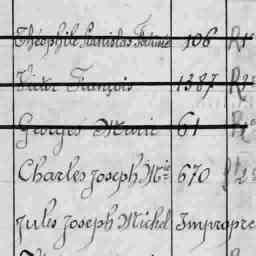 Théophile Stanislas 106
Victor François 1387
Georges Marie 61
Charles Joseph Mie 670
Jules Joseph Michel Impropre